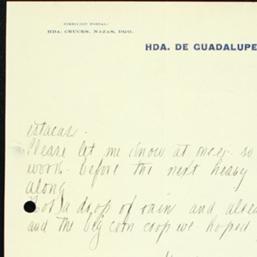 DIRECCION POSTAL:
HDA. CRUCES, NAZAS, DGO.
HDA. DE GUADALUPE
estacas.
Please let me know at once, so
work before the next heavy
along
Not a drop of rain and
and the big corn crop we hoped